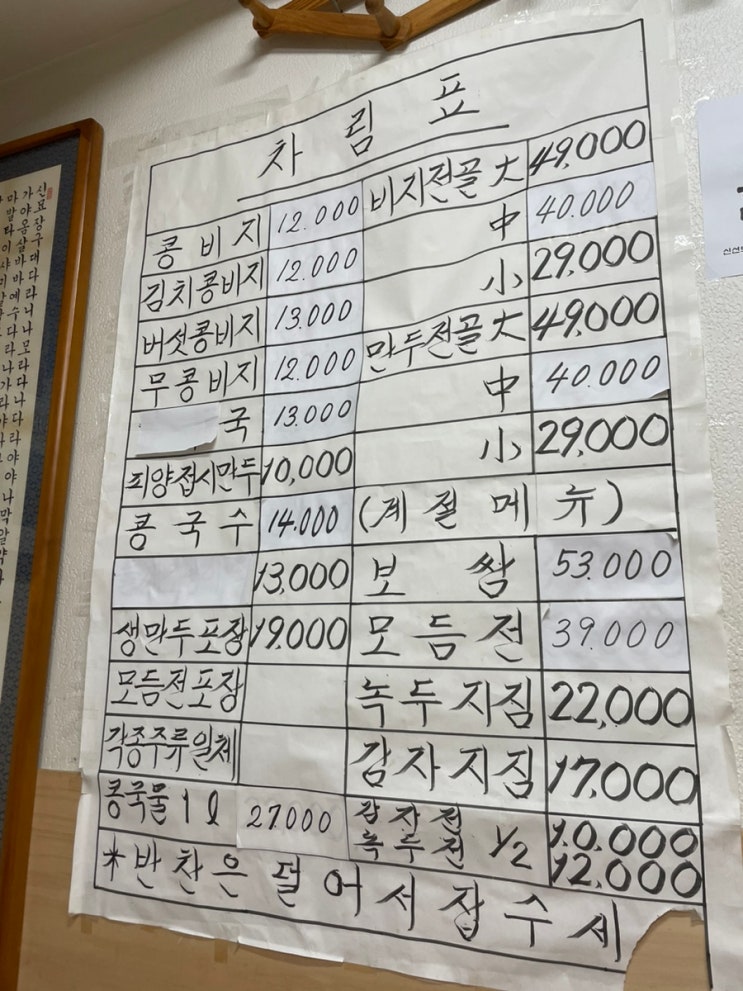 차림표
콩비지 12.000
김치콩비지 12.000
버섯콩비지 13.000
무콩비지 12.000
국 13.000
피양접시만두 10,000
콩국수 14.000
13,000
생만두포장 19.000
모듬전포장
각종주류일체
콩국물 1ℓ 27.000
비지전골 大 49,000
中 40.000
小 29,000
만두전골 大 49,000
中 40.000
小 29,000
(계절메뉴)
보쌈 53.000
모듬전 39.000
녹두지짐 22,000
감자지짐 17.000
감자전 1/2 10.000
녹두전 12,000
*반찬은 덜어서 잡수세